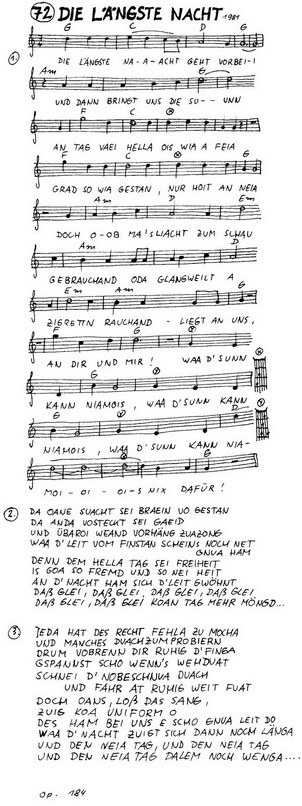 72 DIE LÄNGSTE NACHT 1981
G C D G
1.
DIE LÄNGSTE NA-A-ACHT GEHT VORBEI-I
Am G
UND DANN BRINGT UNS DIE SU--UNN
F C
AN TAG VAEI HELLA OIS WIA A FEIA
F C G
GRAD SO WIA GESTAN, NUR HOIT AN NEIA
Am D Em
DOCH O-OB MA'S LIACHT ZUM SCHAU
Am
GEBRAUCHAND ODA GLANGWEILT A
Em Am
ZIGRETTN RAUCHAND - LIEGT AN UNS,
AN DIR UND MIR! WAA D'SUNN
G
KANN NIAMOIS, WAA D'SUNN KANN
G D
NIAMOIS, WAA D'SUNN KANN NIA-
G
MOI-OI-OI-S NIX DAFÜR!
2. DA OANE SUACHT SEI BRAEIN VO GESTAN
DA ANDA VOSTECKT SEI GAEID
UND ÜBAROI WEAND VORHÄNG ZUAZONG
WAA D'LEIT VOM FINSTAN SCHEINS NOCH NET
GNUA HAM
DENN DEM HELLA TAG SEI FREIHEIT
IS GOA SO FREMD UND SO NEI HEIT
AN D'NACHT HAM SICH D'LEIT GWÖHNT
DAß GLEI, DAß GLEI, DAß GLEI, DAß GLEI
DAß GLEI, DAß GLEI KOAN TAG MEHR MÖNGD...
3. JEDA HAT DES RECHT FEHLA ZU MOCHA
UND MANCHES DUACHZUMPROBIERN
DRUM VOBRENN DIR RUHIG D'FINGA
GSPANNST SCHO WENN'S WEHDUAT
SCHNEI D'NOBESCHNUA DUACH
UND FAHR AT RUHIG WEIT FUAT
DOCH OANS, LOß DAS SANG,
ZUIG KOA UNIFORM O
DES HAM BEI UNS E SCHO GNUA LEIT DO
WAA D'NACHT ZUIGT SICH DANN NOCH LÄNGA
UND DEN NEIA TAG, UND DEN NEIA TAG
UND DEN NEIA TAG DALEM NOCH WENGA....
OP. 184